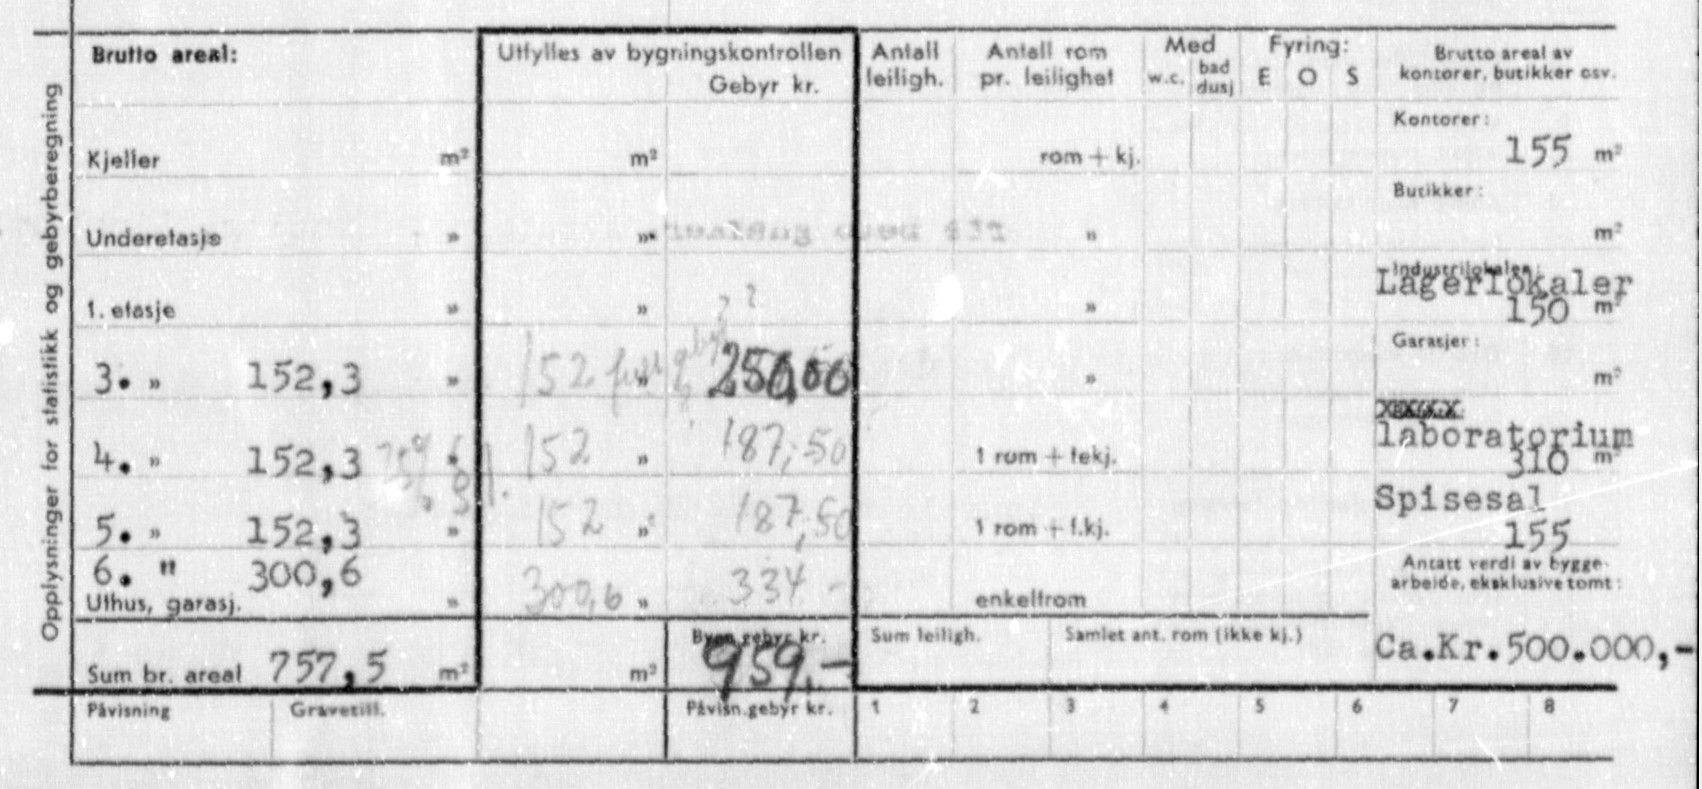 Opplysninger for statistikk og gebyrberegning
Brutto areal:
Utfylles av bygningskontrollen
Gebyr kr.
Antall leiligh.
Antall rom pr. leilighet
Med
w.c. bad dusj
Fyring:
E O S
Brutto areal av
kontorer, butikker osv.
Kjeller m² m² rom + kj.
Kontorer:
155 m²
Underetasje » » »
Butikker:
m²
1. etasje » » »
Industrilokaler:
Lagerlokaler
150 m²
3. » 152,3 » 152 full » 250,00 »
Garasjer:
m²
4. » 152,3 » 152 » 187,50 1 rom + tekj.
xxxxx
laboratorium
310 m²
5. » 152,3 » 152 » 187,50 1 rom + f.kj.
Spisesal
155
6. " 300,6
Uthus, garasj. » 300,6 » 334 - enkeltrom
Antatt verdi av bygge-
arbeide, eksklusive tomt:
Ca.Kr.500.000,-
Sum br. areal 757,5 m² m²
Bygn.gebyr kr.
959,-
Sum leiligh.
Samlet ant. rom (ikke kj.)
Påvisning Gravetill. Påvisn.gebyr kr. 1 2 3 4 5 6 7 8